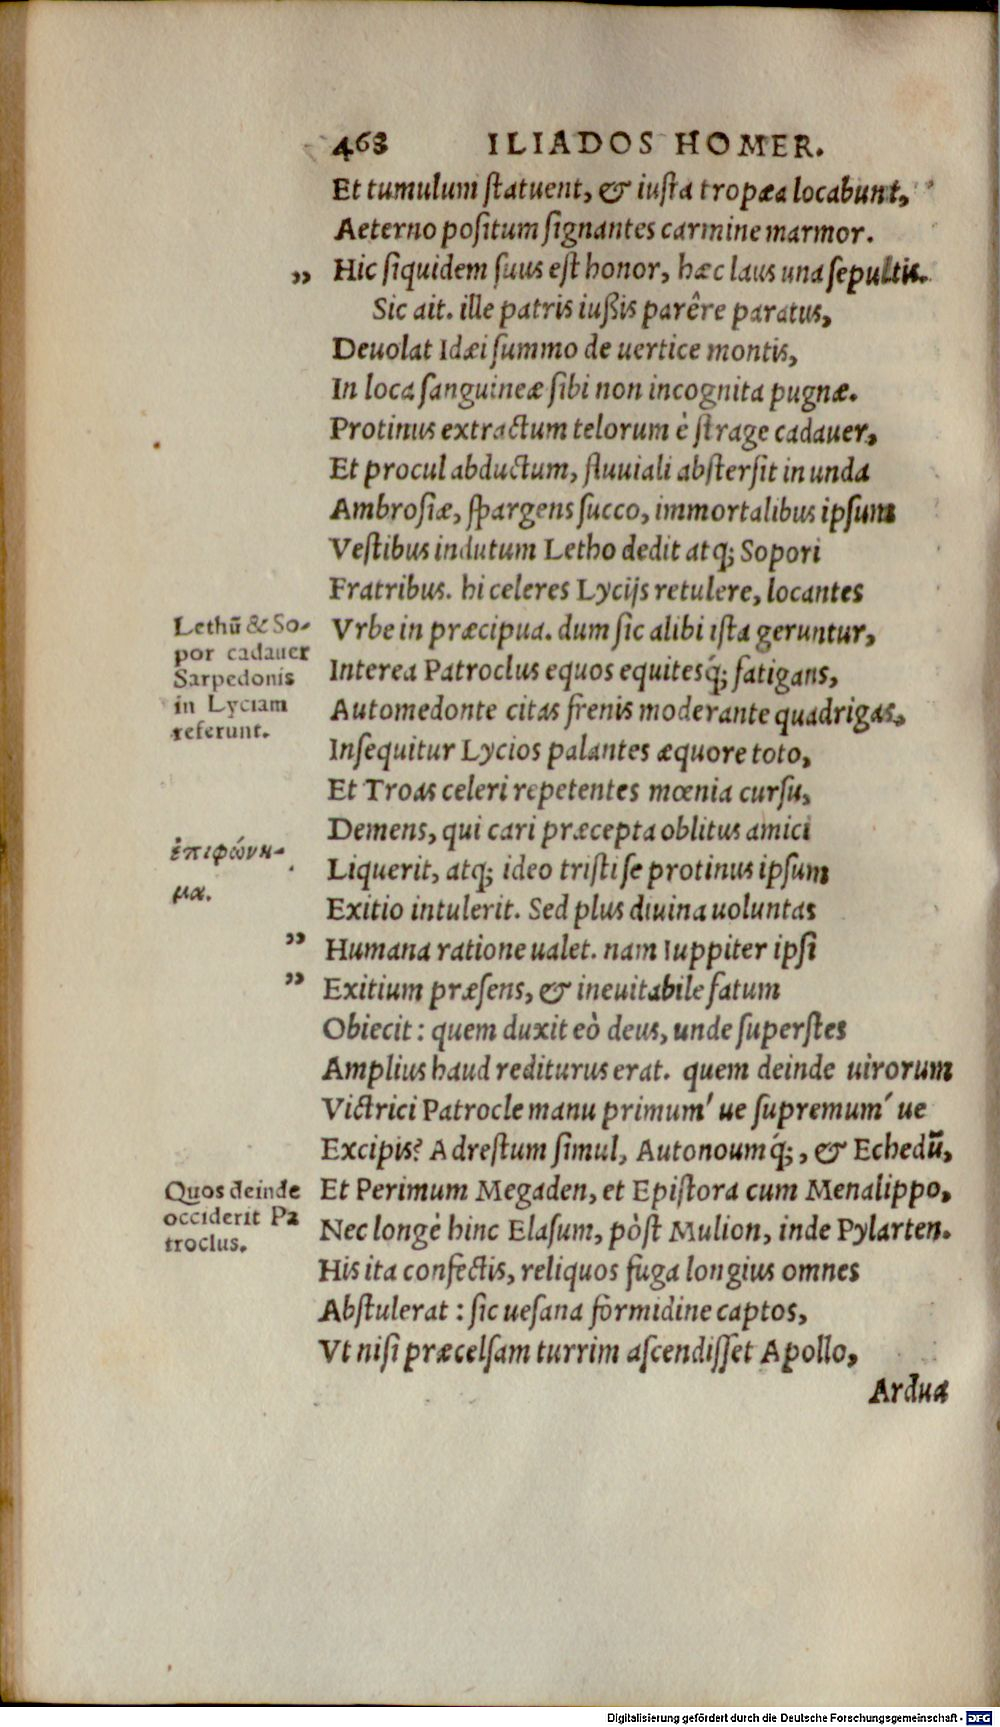 463 ILIADOS HOMER.
Et tumulum ſtatuent, & iuſta tropæa locabunt,
Aeterno poſitum ſignantes carmine marmor.
” Hic ſiquidem ſuus eſt honor, hæc laus una ſepultis.
Sic ait. ille patris iußis parêre paratus,
Deuolat Idæi ſummo de uertice montis,
In loca ſanguineæ ſibi non incognita pugnæ.
Protinus extractum telorum è ſtrage cadauer,
Et procul abductum, fluuiali abſterſit in unda
Ambroſiæ, ſpargens ſucco, immortalibus ipſum
Veſtibus indutum Letho dedit atq; Sopori
Fratribus. hi celeres Lycijs retulere, locantes
Vrbe in præcipua. dum ſic alibi iſta geruntur,
Lethū & So-
por cadauer
Sarpedonis
in Lyciam
referunt.
Interea Patroclus equos equitesq́; fatigans,
Automedonte citas frenis moderante quadrigas,
Inſequitur Lycios palantes æquore toto,
Et Troas celeri repetentes mœnia curſu,
Demens, qui cari præcepta oblitus amici
ἐπιφώνη-
μα.
Liquerit, atq; ideo triſti ſe protinus ipſum
Exitio intulerit. Sed plus diuina uoluntas
” Humana ratione ualet. nam Iuppiter ipſi
” Exitium præſens, & ineuitabile fatum
Obiecit: quem duxit eò deus, unde ſuperſtes
Amplius haud rediturus erat. quem deinde uirorum
Victrici Patrocle manu primum' ue ſupremum' ue
Excipis? Adreſtum ſimul, Autonoumq́;, & Echedū,
Quos deinde
occiderit Pa
troclus.
Et Perimum Megaden, et Epiſtora cum Menalippo,
Nec longè hinc Elaſum, pòſt Mulion, inde Pylarten.
His ita confectis, reliquos fuga longius omnes
Abſtulerat: ſic ueſana formidine captos,
Vt niſi præcelſam turrim aſcendiſſet Apollo,
Ardua
Digitalisierung gefördert durch die Deutsche Forschungsgemeinschaft - DFG